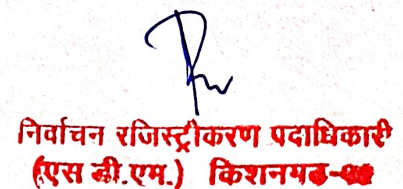 निर्वाचन रजिस्ट्रीकरण पदाधिकारी
(एस डी.एम.) किशनगढ़-